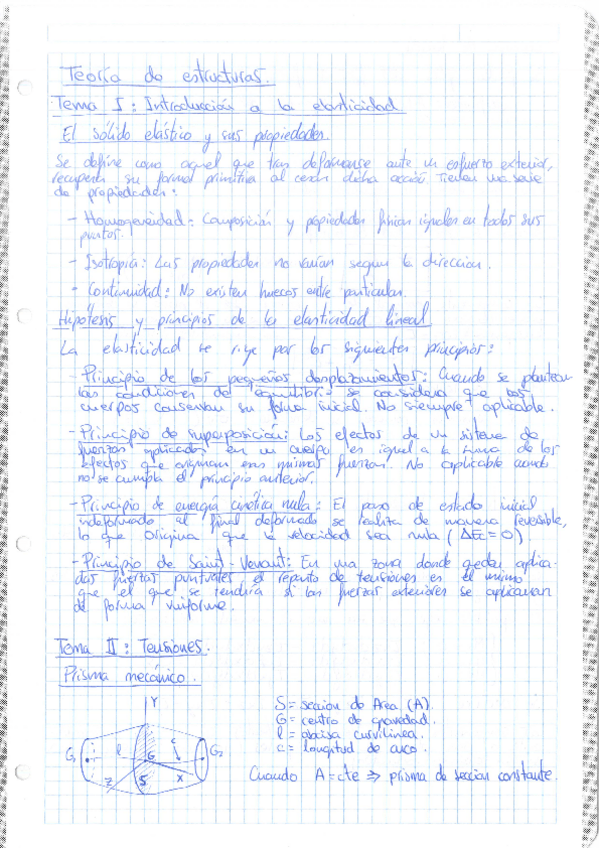 Teoría de estructuras.
Tema I: Introducción a la elasticidad
El sólido elástico y sus propiedades.
Se define como aquel que tras deformarse ante un esfuerzo exterior,
recupera su forma primitiva al cesar dicha acción. Tienen una serie
de propiedades:
- Homogeneidad: Composición y propiedades físicas iguales en todos sus
puntos.
- Isotropía: Las propiedades no varían segun la direccion.
- Continuidad: No existen huecos entre particulas.
Hipótesis y principios de la elasticidad lineal
La elasticidad se rige por los siguientes principios:
- Principio de los pequeños desplazamientos: Cuando se plantean
las condiciones de equilibrio se considera que los
cuerpos conservan su forma inicial. No siempre aplicable.
- Principio de superposición: Los efectos de un sistema de
fuerzas aplicados en un cuerpo es igual a la suma de los
efectos que originan esas mismas fuerzas. No aplicable cuando
no se cumpla el principio anterior.
- Principio de energía cinética nula: El paso de estado inicial
indeformado al final deformado se realiza de manera reversible,
lo que origina que la velocidad sea nula (ΔEc=0)
- Principio de Saint-Venant: En una zona donde quedan aplica-
das fuerzas puntuales el reparto de tensiones es el mismo
que el que se tendría si las fuerzas exteriores se aplicaran
de forma uniforme.
Tema II: Tensiones.
Prisma mecánico.
S = seccion de Area (A).
G = centro de gravedad.
l = abcisa curvilinea.
c = longitud de arco.
Cuando A = cte ⇒ prisma de seccion constante.
Y
G₁ l G c G₂
Z S X